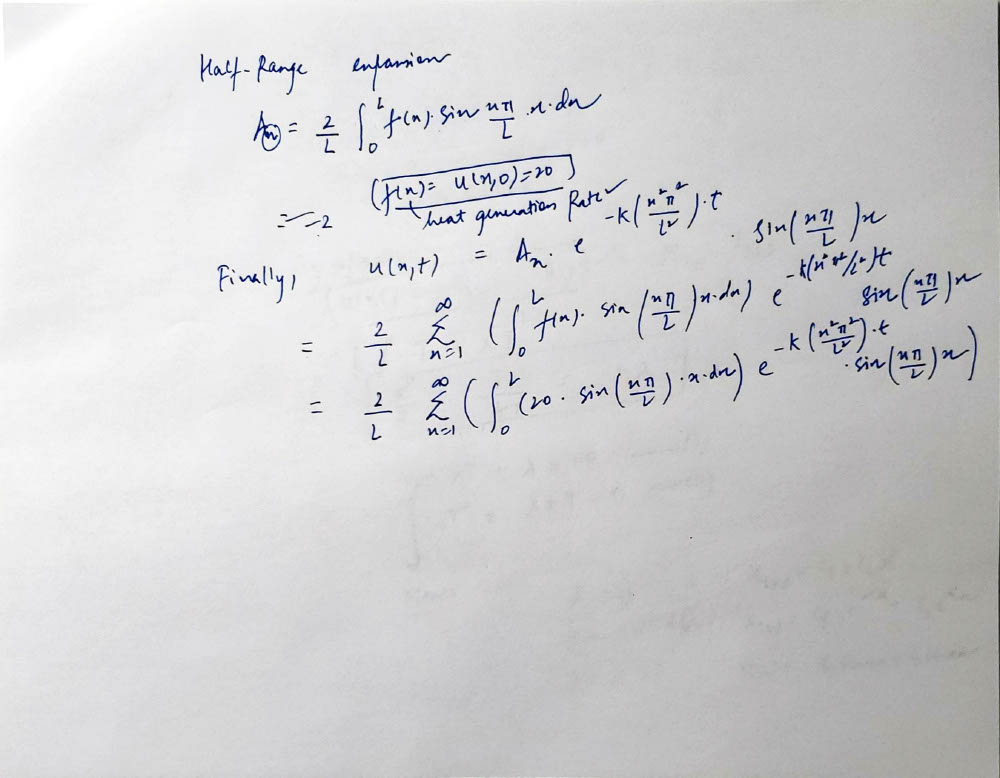 Half-Range expansion
Aₙ = 2/L ∫₀ᴸ f(x)· sin nπ/L ·x·dx
(f(x) = u(x,0) = 20)
heat generation Rate ✓
Finally, u(x,t) = Aₙ · e^(-K(n²π²/L²)·t) · sin(nπ/L)x
= 2/L ∑_{n=1}^{∞} (∫₀ᴸ f(x)· sin(nπ/L)x·dx) e^(-K(n²π²/L²)t) sin(nπ/L)x
= 2/L ∑_{n=1}^{∞} (∫₀ᴸ (20 · sin(nπ/L)·x·dx) e^(-K(n²π²/L²)·t) · sin(nπ/L)x)